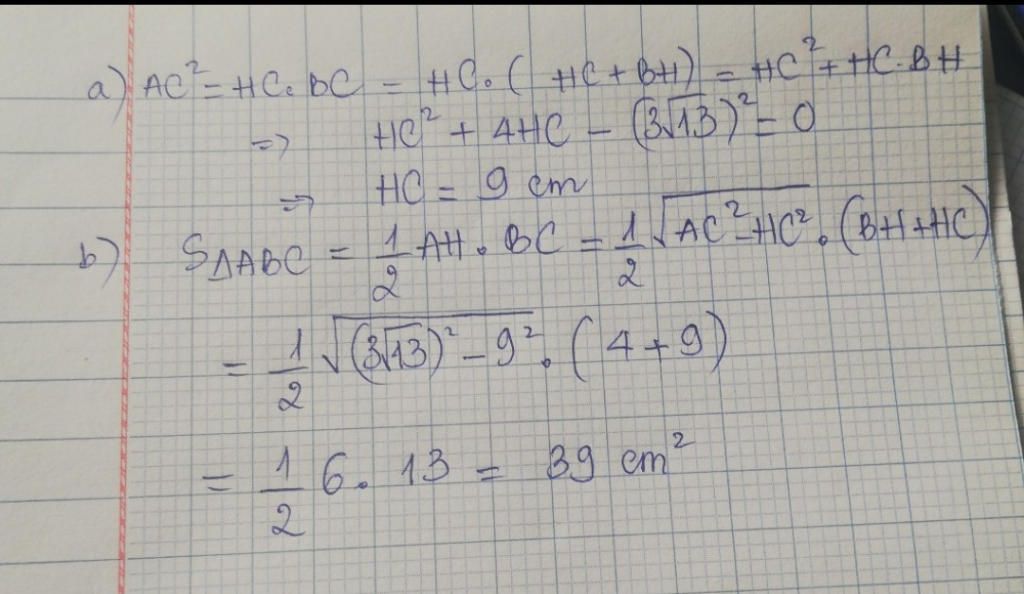 a) AC² = HC. BC = HC. ( HC + BH) = HC² + HC. BH
=> HC² + 4HC - (3√13)² = 0
=> HC = 9 cm
b) SΔABC = 1/2 AH. BC = 1/2 √(AC² - HC²) . (BH + HC)
= 1/2 √((3√13)² - 9²) . ( 4 + 9)
= 1/2 6. 13 = 39 cm²